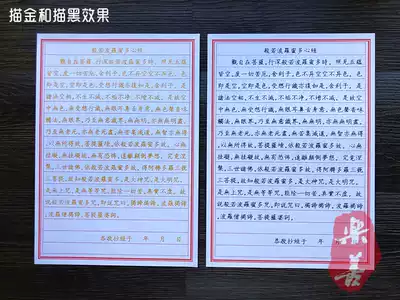 描金和描黑效果
般若波羅蜜多心經
觀自在菩薩,行深般若波羅蜜多時,照見五蘊
皆空,度一切苦厄,舍利子,色不异空空不异色,色
即是空,空即是色,受想行識亦復如是,舍利子,是
諸法空相,不生不滅,不垢不淨,不增不減,是故空
中無色,無受想行識,無眼耳鼻舌身意,無色聲香味
觸法,無眼界,乃至無意識界,無無明,亦無無明盡,
乃至無老死,亦無老死盡,無苦集滅道,無智亦無得
以無所得故,菩提薩埵,依般若波羅蜜多故,心無
罣礙,無罣礙故,無有恐怖,遠離顛倒夢想,究竟涅
槃,三世諸佛,依般若波羅蜜多故,得阿耨多羅三藐
三菩提,故知般若波羅蜜多,是大神咒,是大明咒,
是無上咒,是無等等咒,能除一切苦,真實不虛,故
說般若波羅蜜多咒,即說咒曰,揭諦揭諦,波羅揭諦
波羅僧揭諦,菩提薩婆訶。
恭敬抄經于 年 月 日
般若波羅蜜多心經
觀自在菩薩,行深般若波羅蜜多時,照見五蘊
皆空,度一切苦厄,舍利子,色不异空空不异色,色
即是空,空即是色,受想行識亦復如是,舍利子,是
諸法空相,不生不滅,不垢不淨,不增不減,是故空
中無色,無受想行識,無眼耳鼻舌身意,無色聲香味
觸法,無眼界,乃至無意識界,無無明,亦無無明盡,
乃至無老死,亦無老死盡,無苦集滅道,無智亦無得
以無所得故,菩提薩埵,依般若波羅蜜多故,心無
罣礙,無罣礙故,無有恐怖,遠離顛倒夢想,究竟涅
槃,三世諸佛,依般若波羅蜜多故,得阿耨多羅三藐
三菩提,故知般若波羅蜜多,是大神咒,是大明咒,
是無上咒,是無等等咒,能除一切苦,真實不虛,故
說般若波羅蜜多咒,即說咒曰,揭諦揭諦,波羅揭諦
波羅僧揭諦,菩提薩婆訶。
恭敬抄經于 年 月 日
樂善